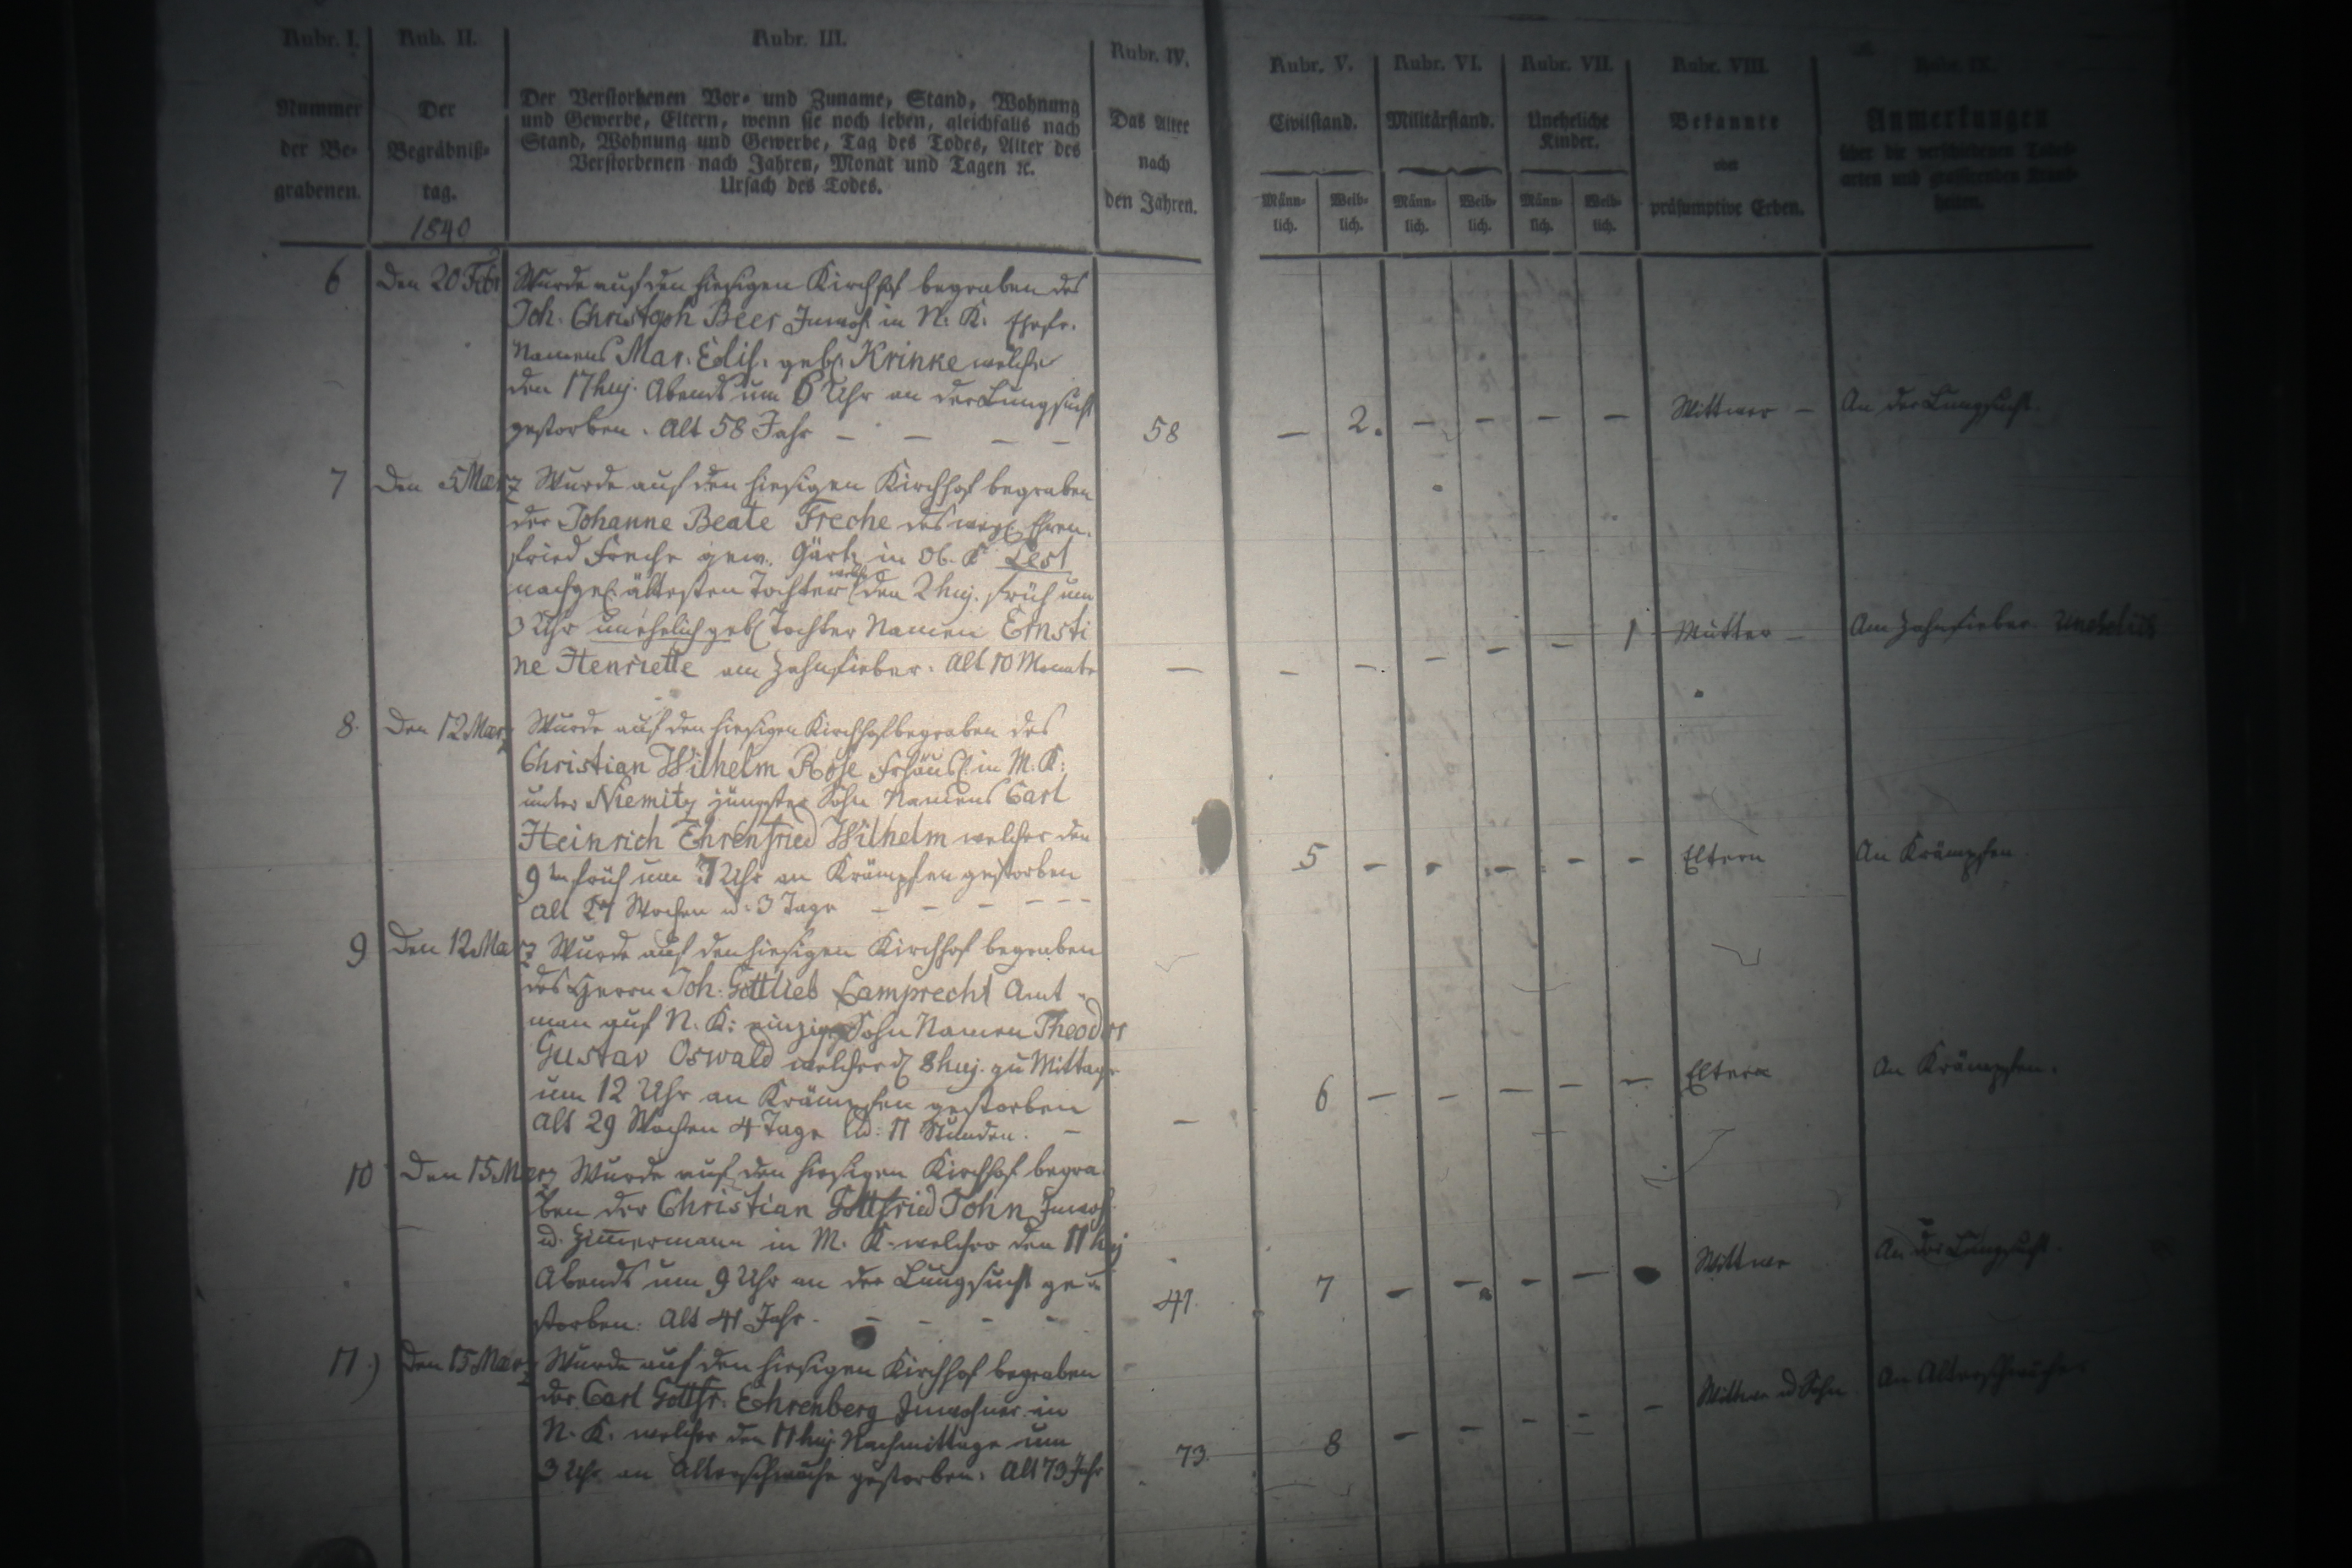 Rubr. I. Rub. II. Rubr. III. Rubr. IV. Rubr. V. Rubr. VI. Rubr. VII. Rubr. VIII. Rubr. IX.
Nummer
der Be-
grabenen.
Der
Begräbniß-
tag.
1840
Der Verstorbenen Vor- und Zuname, Stand, Wohnung
und Gewerbe, Eltern, wenn sie noch leben, gleichfalls nach
Stand, Wohnung und Gewerbe, Tag des Todes, Alter des
Verstorbenen nach Jahren, Monat und Tagen ꝛc.
Ursach des Todes.
Das Alter
nach
den Jahren.
Civilstand.
Männ-
lich.
Weib-
lich.
Militärstand.
Männ-
lich.
Weib-
lich.
Unehelicht
Kinder.
Männ-
lich.
Weib-
lich.
Bekannte
oder
präsumptive Erben.
Anmerkungen
über die verschiedenen Todes-
arten und grassirenden Krank-
heiten.
6 Den 20 Febr Wurde auf den hiesigen Kirchhof begraben des
Joh. Christoph Beer Inwoh. in N. K. Ehefr.
Namens Mar. Elis. geb. Krinke welche
den 17 huj. Abends um 6 Uhr an der Lungsucht
gestorben. Alt 58 Jahr – – – –
58 – 2. – – – – Wittwer – An der Lungsucht.
7 Den 5 Maerz Wurde auf den hiesigen Kirchhof begraben
der Johanne Beate Freche des Ehren-
fried Freche gew. Gärtn. in Ob. K
nachgel. ältesten Tochter welche den 2 huj. früh um
3 Uhr unehelich geb. Tochter Namen Ernsti
ne Henriette am Zahnfieber. Alt 10 Monate
– – – – – – 1 Mutter – Am Zahnfieber. Unehelich
8. Den 12 Maerz Wurde auf den hiesigen Kirchhof begraben des
Christian Wilhelm Rose Frhäusl. in M. K:
unter Niemitz jüngster Sohn Namens Carl
Heinrich Ehrenfried Wilhelm welcher den
9ten früh um Uhr an Krämpfen gestorben
Alt Wochen u. 3 Tage – – – – – –
5 – – – – – Eltern An Krämpfen
9 Den 12 Maerz Wurde auf den hiesigen Kirchhof begraben
des Herrn Joh. Gottlieb Lamprecht Amt-
man auf N. K: einziger Sohn Namen Theodor
Gustav Oswald welcher d. 8 huj. zu Mittage
um 12 Uhr an Krämpfen gestorben
Alt 29 Wochen 4 Tage u. 11 Stunden. –
– 6 – – – – – Eltern An Krämpfen.
10 Den 15 Maerz Wurde auf den hiesigen Kirchhof begra-
ben der Christian Gottfried John Inwoh.
u. Zimmermann in M. K. welcher den 11 huj
Abends um 9 Uhr an der Lungsucht ge-
storben. Alt 41 Jahr. – – – –
41. 7 – – – – Wittwe An der Lungsucht.
11.) Den 15 Maerz Wurde auf den hiesigen Kirchhof begraben
der Carl Gottfr. Ehrenberg Inwohner in
N. K. welcher den 11 huj Nachmittage um
3 Uhr an Altersschwäche gestorben. Alt 73 Jahr
73. 8 – – – – – Wittwe u Sohn An Altersschwäche